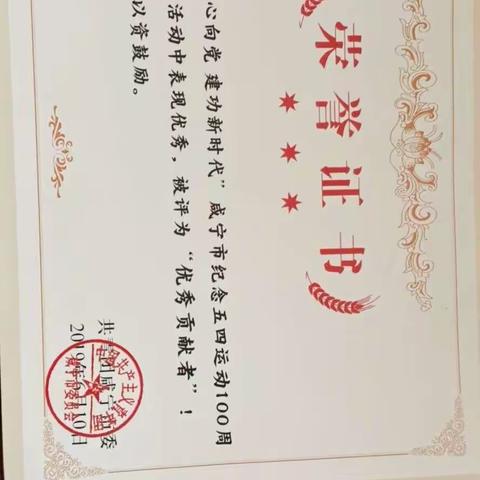 荣誉证书
心向党 建功新时代”咸宁市纪念五四运动100周
活动中表现优秀，被评为“优秀贡献者”！
以资鼓励。
共青团咸宁市委
2019年6月10日
咸宁市委员会